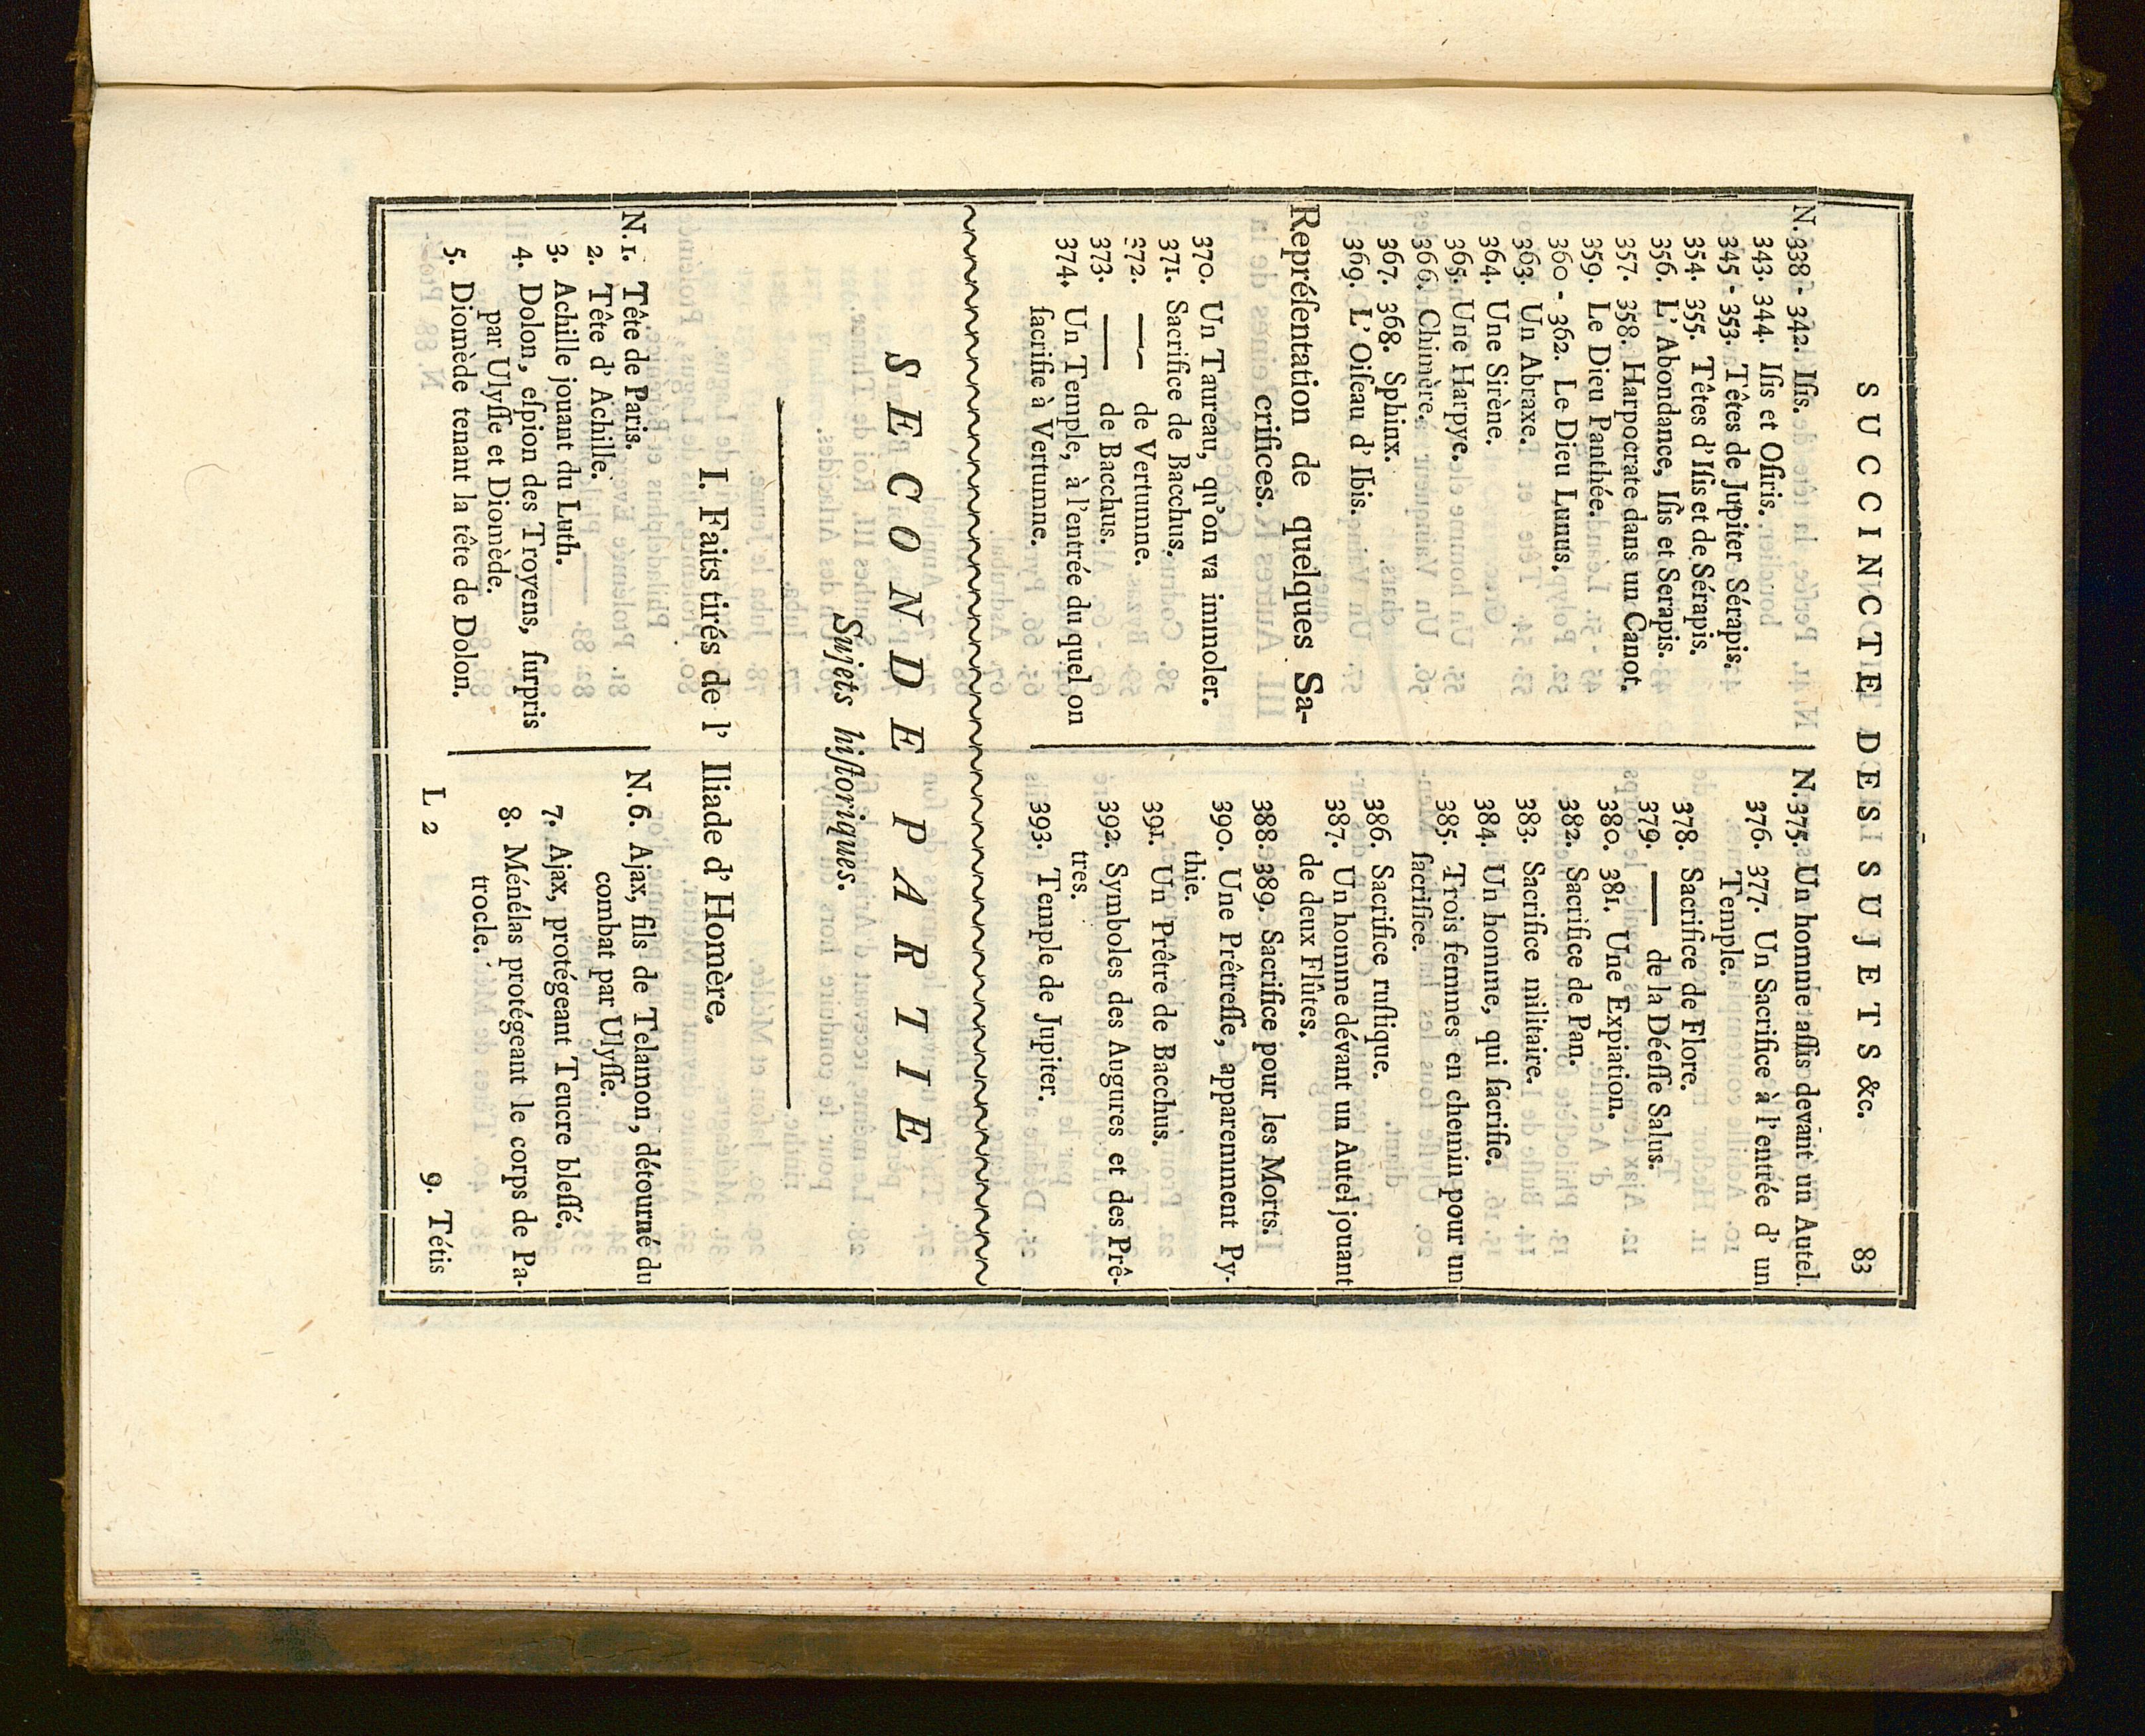 SUCCINCTE DES SUJETS &c. 83
N. 338 - 342. Iſis.
343. 344. Iſis et Oſiris.
345 - 353. Têtes de Jupiter Sérapis.
354. 355. Têtes d'Iſis et de Sérapis.
356. L'Abondance, Iſis et Serapis.
357. 358. Harpocrate dans un Canot.
359. Le Dieu Panthée.
360 - 362. Le Dieu Lunus.
363. Un Abraxe.
364. Une Sirène.
365. Une Harpye.
366. Chimère.
367. 368. Sphinx.
369. L'Oiſeau d'Ibis.
Repréſentation de quelques Sa-
crifices.
370. Un Taureau, qu'on va immoler.
371. Sacrifice de Bacchus.
372. —— de Vertumne.
373. —— de Bacchus.
374. Un Temple, à l'entrée du quel on
ſacrifie à Vertumne.
N. 375. Un homme aſſis devant un Autel.
376. 377. Un Sacrifice à l'entrée d'un
Temple.
378. Sacrifice de Flore.
379. —— de la Déeſſe Salus.
380. 381. Une Expiation.
382. Sacrifice de Pan.
383. Sacrifice militaire.
384. Un homme, qui ſacrifie.
385. Trois femmes en chemin pour un
ſacrifice.
386. Sacrifice ruſtique.
387. Un homme dévant un Autel jouant
de deux Flûtes.
388. 389. Sacrifice pour les Morts.
390. Une Prêtreſſe, apparemment Py-
thie.
391. Un Prêtre de Bacchus.
392. Symboles des Augures et des Prê-
tres.
393. Temple de Jupiter.
SECONDE PARTIE
Sujets hiſtoriques.
I. Faits tirés de l'Iliade d'Homère.
N. 1. Tête de Paris.
2. Tête d'Achille.
3. Achille jouant du Luth.
4. Dolon, eſpion des Troyens, ſurpris
par Ulyſſe et Diomède.
5. Diomède tenant la tête de Dolon.
N. 6. Ajax, fils de Telamon, détourné du
combat par Ulyſſe.
7. Ajax, protégeant Teucre bleſſé.
8. Ménélas protégeant le corps de Pa-
trocle.
L 2 9. Tétis